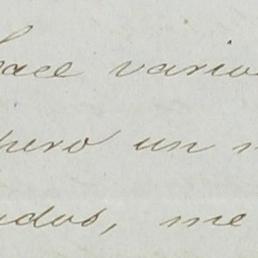 hace vario
pero un m
udos, me